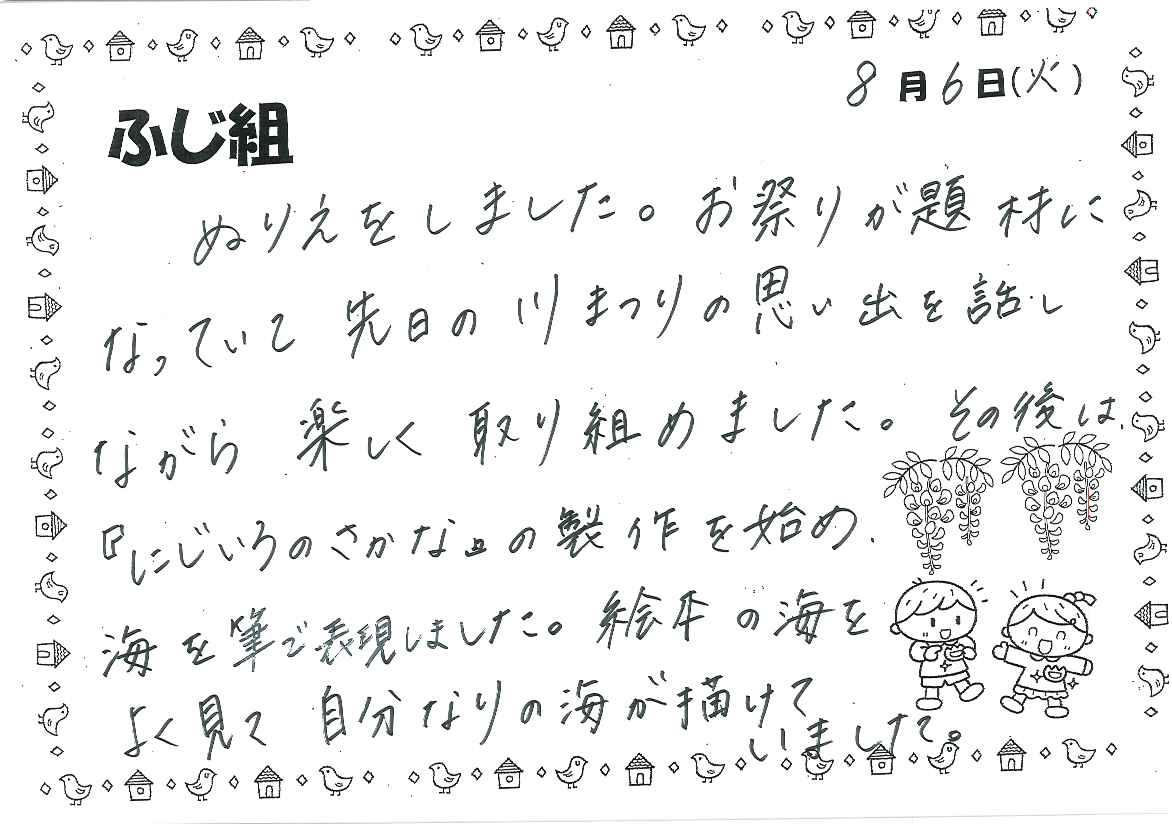 8月6日(火)
ふじ組
ぬりえをしました。お祭りが題材に
なっていて先日の川まつりの思い出を話し
ながら楽しく取り組めました。その後は、
『にじいろのさかな』の製作を始め、
海を筆で表現しました。絵本の海を
よく見て自分なりの海が描けて
いました。